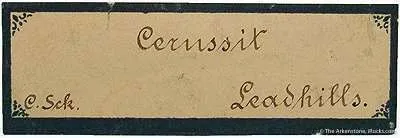 Cerussit
C. Sck. Leadhills.
© The Arkenstone, iRocks.com